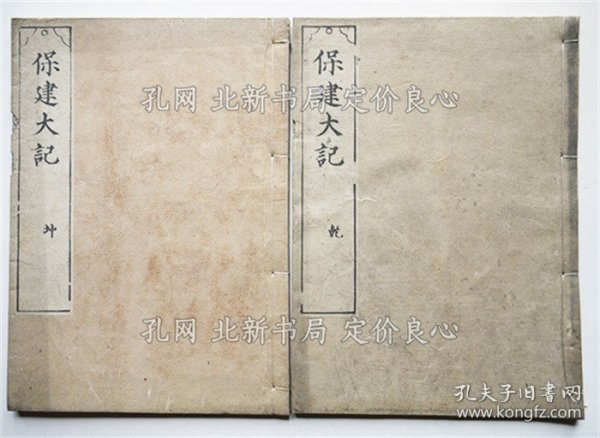 保建大記
乾
保建大記
坤
孔网 北新书局 定价良心
孔网 北新书局 定价良心
孔夫子旧書网
www.kongfz.com